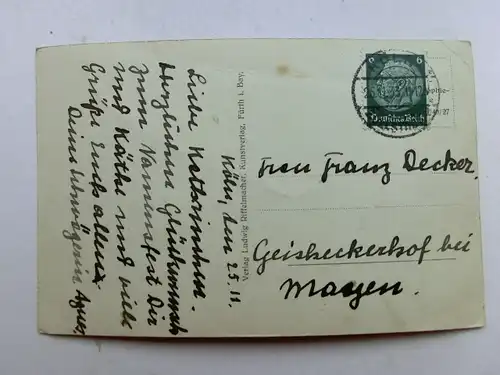 Köln, den 25.11.
Liebe Katharinchen.
Herzlichen Glückwunsch
zum Namensfest Dir
und Käthe und viele
Grüße Euch allen
Deine Schwägerin Agnes.
Verlag Ludwig Riffelmacher, Kunstverlag, Fürth i. Bay.
6 6
Deutsches Reich
Frau Franz Decker
Geisheckerhof bei
Mayen.